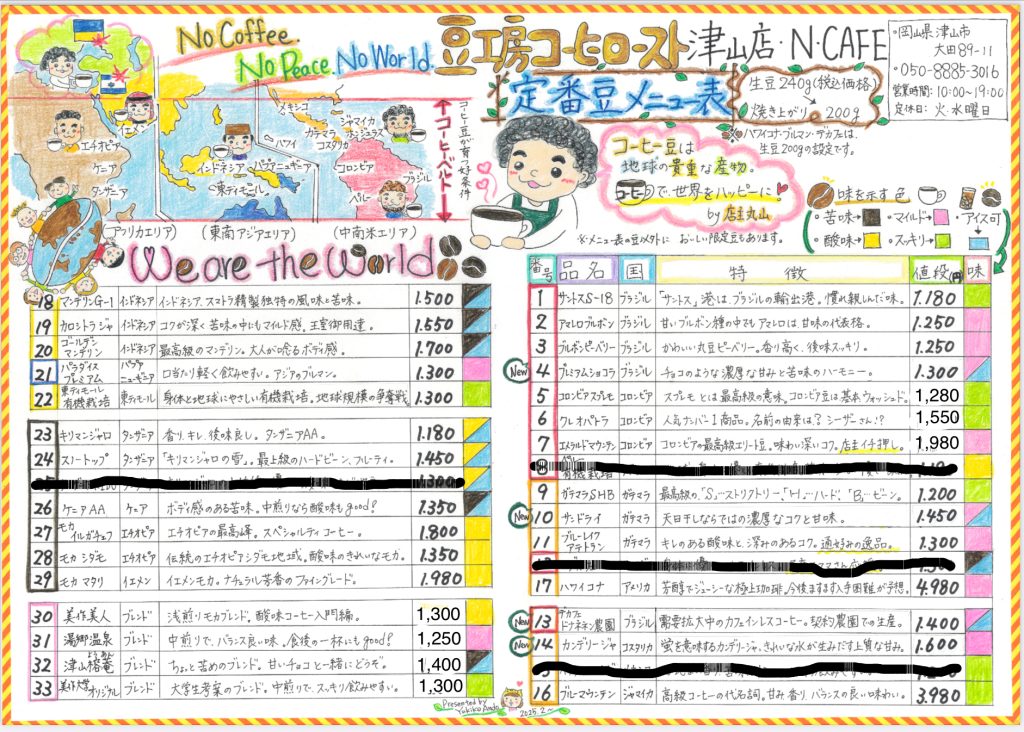 No Coffee.
No Peace. No World.
豆工房コーヒーロースト 津山店・N・CAFE
定番豆メニュー表
・岡山県津山市
大田89-11
・050-8885-3016
営業時間:10:00~19:00
定休日:火・水曜日
生豆240g(税込価格)
焼き上がり 200g
※ハワイコナ・ブルマン・デカフェは、
生豆200gの設定です。
コーヒー豆は
地球の貴重な産物。
コーヒーで世界をハッピーに!
by 店主丸山
※メニュー表の豆以外に おいしい限定豆もあります。
味を示す色
・苦味→ ・マイルド→ ・アイス可
・酸味→ ・スッキリ→
イエメン
エチオピア
ケニア
タンザニア
インドネシア
パプアニューギニア
東ティモール
ハワイ
メキシコ
ジャマイカ
グァテマラ ホンジュラス
コスタリカ
コロンビア
ブラジル
ペルー
コーヒーベルト
コーヒー豆が育つ好条件
(アフリカエリア)
(東南アジアエリア)
(中南米エリア)
We are the World
18 マンデリンG-1 インドネシア インドネシア、スマトラ精製独特の風味と苦味。 1.500
19 カロシトラジャ インドネシア コクが深く苦味の中にもマイルド感。王室御用達。 1.550
20 ゴールデンマンデリン インドネシア 最高級のマンデリン。大人が唸るボディ感。 1.700
21 パラダイスプレミアム パプアニューギニア 口当たり軽く飲みやすい。アジアのブルマン。 1.300
22 東ティモール有機栽培 東ティモール 身体と地球にやさしい有機栽培。地球規模の争奪戦。 1.300
23 キリマンジャロ タンザニア 香り、キレ、後味良し。タンザニアAA。 1.180
24 スノートップ タンザニア 「キリマンジャロの雪」。最上級のハードビーン、フルーティ。 1.450
26 ケニアAA ケニア ボディ感のある苦味。中煎りなら酸味もgood! 1.350
27 モカイルガチェフ エチオピア エチオピアの最高峰。スペシャルティコーヒー。 1.800
28 モカ シダモ エチオピア 伝統のエチオピアシダモ地域。酸味のきれいなモカ。 1.350
29 モカ マタリ イエメン イエメンモカ。ナチュラル芳香のファイングレード。 1.980
30 美作美人 ブレンド 浅煎りモカブレンド。酸味コーヒー入門編。 1,300
31 湯郷温泉 ブレンド 中煎りで、バランス良い味。食後の一杯にもgood! 1,250
32 津山榕菴 ブレンド ちょっと苦めのブレンド。甘いチョコと一緒にどうぞ。 1,400
33 美作大学オリジナル ブレンド 大学生考案のブレンド。中煎りで、スッキリ飲みやすい。 1,300
番号 品名 国 特徴 値段(円) 味
1 サントスS-18 ブラジル 「サントス」港は、ブラジルの輸出港。慣れ親しんだ味。 1.180
2 アマレロブルボン ブラジル 甘いブルボン種の中でもアマレロは、甘味の代表格。 1.250
3 ブルボンピーベリー ブラジル かわいい丸豆ピーベリー。香り高く、後味スッキリ。 1.250
New 4 プレミアムショコラ ブラジル チョコのような濃厚な甘みと苦味のハーモニー。 1.300
5 コロンビアスプレモ コロンビア スプレモとは最高級の意味。コロンビア豆は基本ウォッシュド。 1,280
6 クレオパトラ コロンビア 人気ナンバー1商品。名前の由来は?シーザーさん!? 1,550
7 エメラルドマウンテン コロンビア コロンビアの最高級エリート豆。味わい深いコク。店主イチ押し。 1,980
8 有機栽培
9 ガテマラSHB ガテマラ 最高級の、「S」…ストリクトリー、「H」…ハード、「B」…ビーン。 1.200
New 10 サンドライ ガテマラ 天日干しならではの濃厚なコクと甘味。 1.450
11 ブルーレイクアテトラン ガテマラ キレのある酸味と、深みのあるコク。通好みの逸品。 1.300
17 ハワイコナ アメリカ 芳醇でジューシーな極上珈琲。今後ますます入手困難が予想。 4.980
New 13 デカフェドナネネン農園 ブラジル 需要拡大中のカフェインレスコーヒー。契約農園での生産。 1.400
New 14 カンデリージャ コスタリカ 蛍を意味するカンデリージャ。きれいな水が生みだす上質な甘み。 1.600
16 ブルーマウンテン ジャマイカ 高級コーヒーの代名詞。甘み香り、バランスの良い味わい。 3.980
Presented by
Yukiko Ando
2025.2~